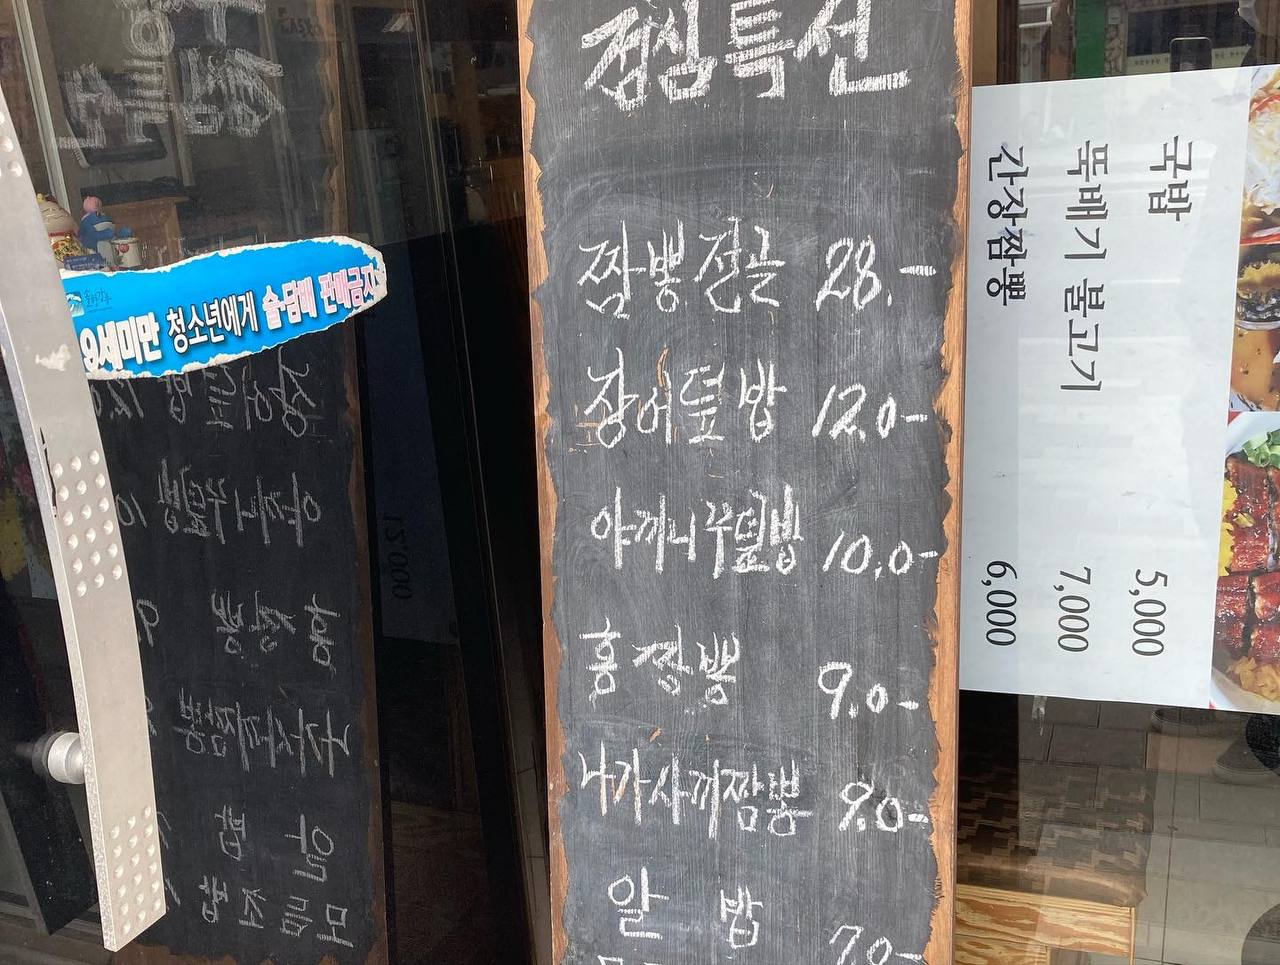 점심특선
짬뽕전골 28.-
장어덮밥 12.0-
야끼니꾸덮밥 10.0-
홍짱뽕 9.0-
나가사끼짬뽕 9.0-
알밥 7.0-
9세미만 청소년에게 술·담배 판매금지
국밥 5,000
뚝배기 불고기 7,000
간장짬뽕 6,000
12,000